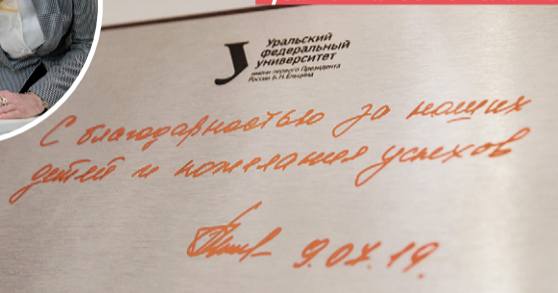 Уральский
федеральный
университет
имени первого Президента
России Б.Н.Ельцина
С благодарностью за наших
детей и пожелания успехов
9.07.19.